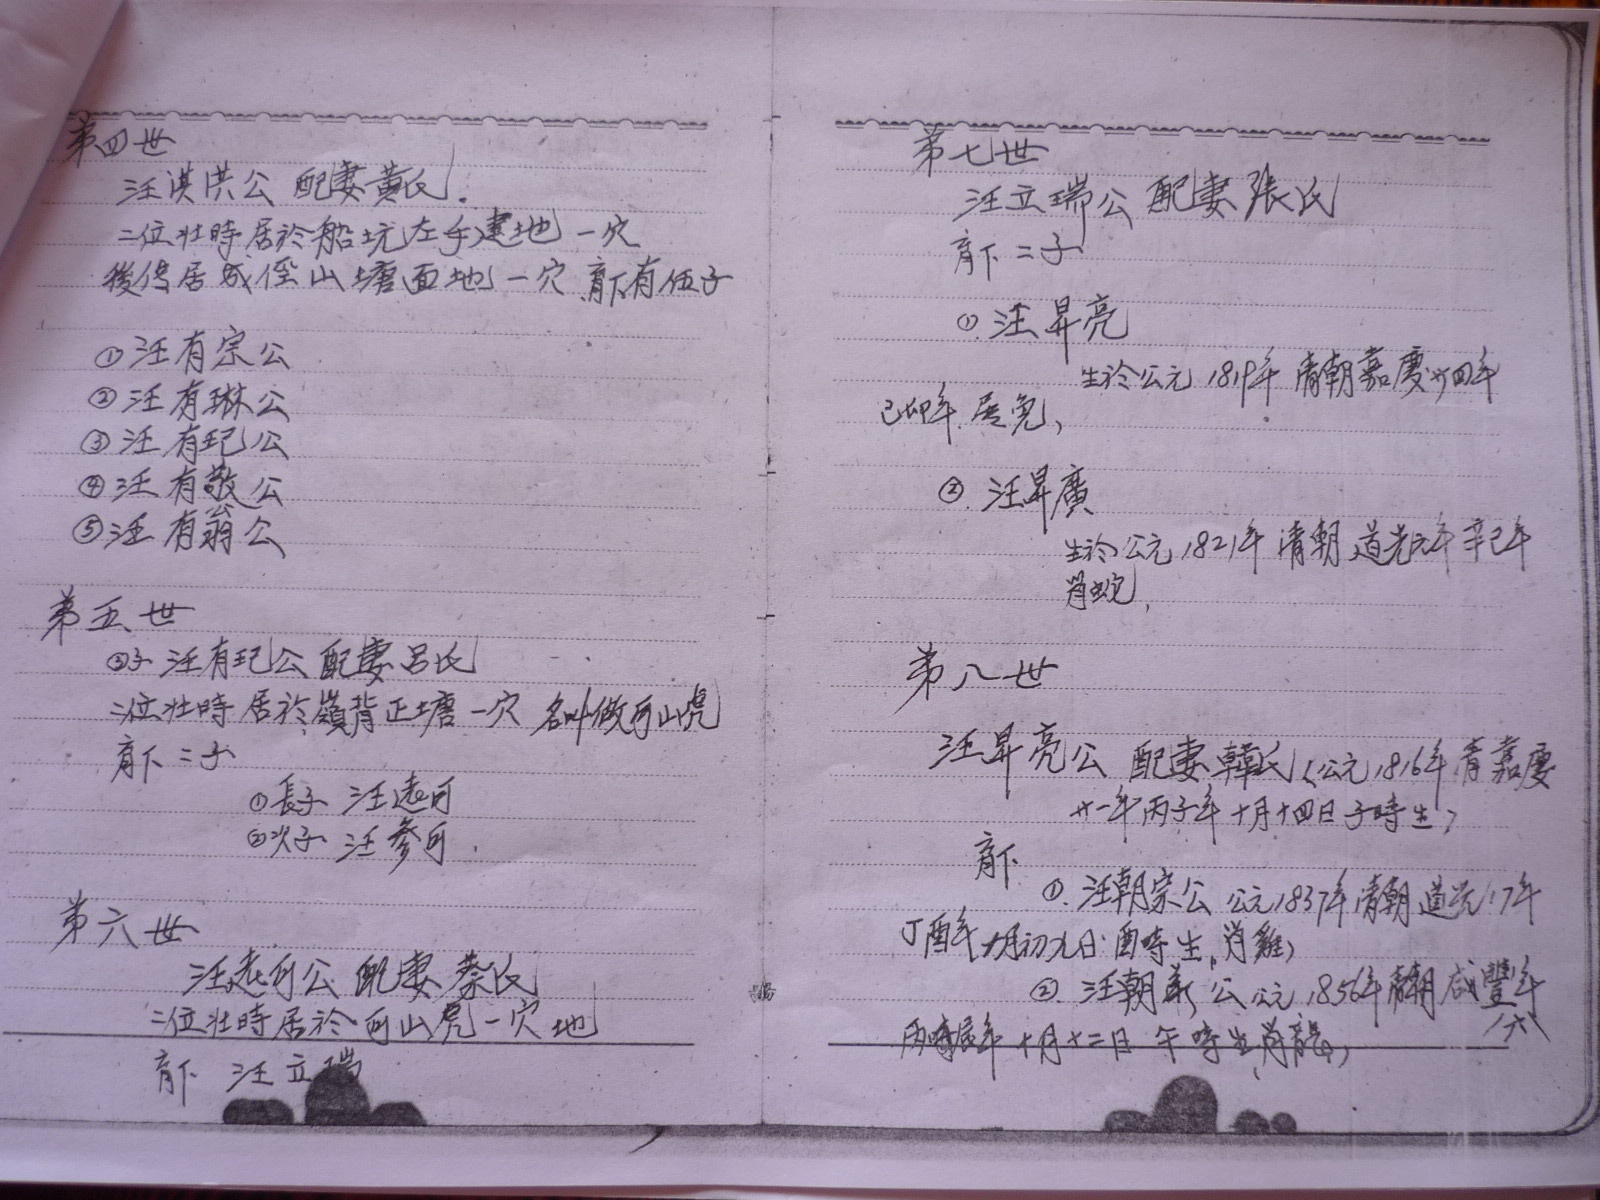 第四世
汪淇洪公 配妻黄氏.
二位壮時居於船坑左手建地一穴
後傳居 山塘面地一穴 育下有伍子
① 汪有宗公
② 汪有琳公
③ 汪有玘公
④ 汪有敬公
⑤ 汪有翁公
第五世
③子 汪有玘公 配妻吕氏
二位壮時居於嶺背正塘一穴 名叫做 山虎
育下二子
①長子 汪 可
②次子 汪參可.
第六世
汪 可公 配妻蔡氏
二位壮時居於 山虎一穴地
育下 汪立瑞
第七世
汪立瑞公 配妻張氏
育下二子
① 汪昇亮
生於公元1819年 清朝嘉慶廿四年
己卯年.屬兔,
②. 汪昇廣
生於公元1821年 清朝 道光元年 辛巳年
肖蛇,
第八世
汪昇亮公 配妻韓氏(公元1816年 青嘉慶
廿一年丙子年十月十四日子時生)
育下
①. 汪朝宗公 公元1837年清朝道光17年
丁酉年 月初九日.酉時生,肖雞)
②. 汪朝 公 公元1856年清朝咸豐年
六
丙 辰年十月十二日 午時生,肖龍)